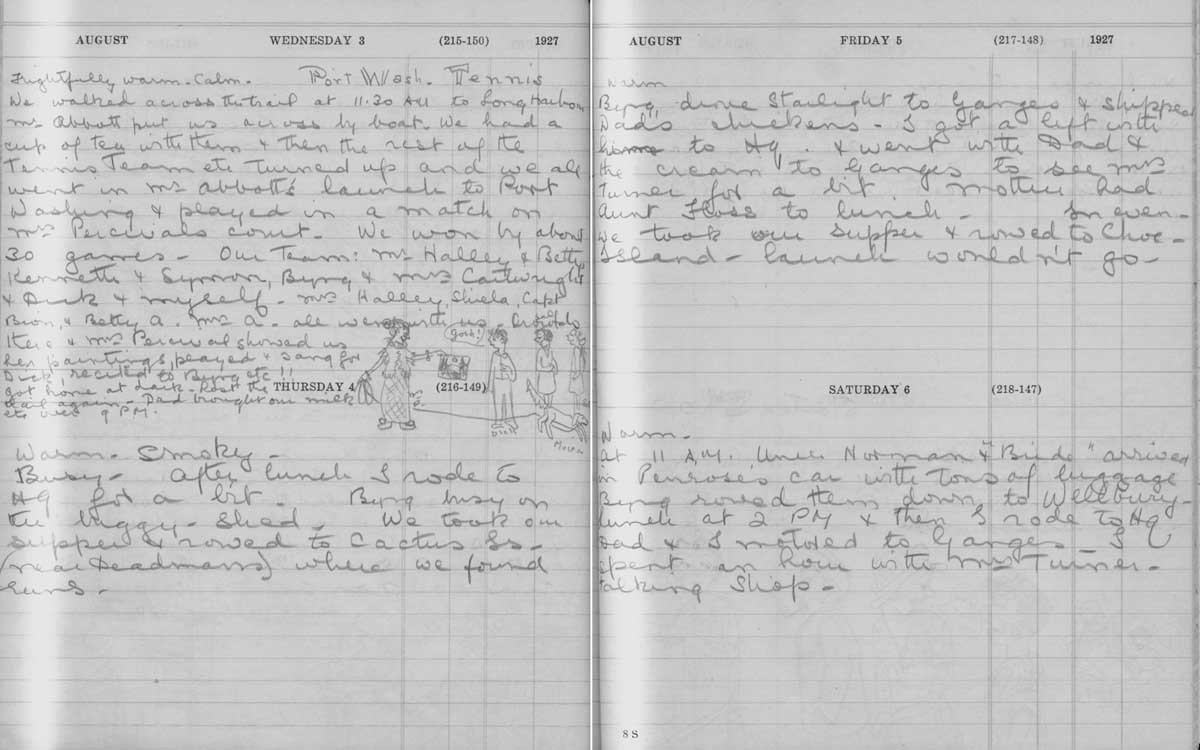 AUGUST WEDNESDAY 3 (215-150) 1927
Frightfully warm. Calm. Port Wash. Tennis
We walked across the trail at 11.30 AM to Long Harbour
Mr Abbott put us across by boat. We had a
cup of tea with them & then the rest of the
Tennis Team etc turned up and we all
went in Mr Abbott's launch to Port
Washing & played in a match on
Mrs Percivals court. We won by about
30 games - Our Team: Mr Halley & Betty
Kenneth & Symon, Byng & Mrs Cartwright
& Dick & myself. Mrs Halley, Shiela, Capt
Bion, & Betty A. Mrs A. all went with us
there & Mrs Percival showed us
her paintings, played & sang for
Dick, recited to Byng etc!!
got home at dark. Lost the
trail again - Dad brought our milk
etc over 9 PM.
gosh!
Dick
THURSDAY 4 (216-149)
Warm. Smokey -
Busy - After lunch I rode to
HQ for a bit. Byng busy on
the buggy-shed. We took our
supper & rowed to Cactus Is-
(near Deadmans) where we found
AUGUST FRIDAY 5 (217-148) 1927
Warm
Byng drove Starlight to Ganges & shipped
Dad's chickens - I got a lift with
to HQ. & went with Dad &
the cream to Ganges to see Mrs
Turner for a bit Mother had
Aunt Floss to lunch - In even-
we took our supper & rowed to Choc-
Island - launch wouldn't go -
SATURDAY 6 (218-147)
Warm -
at 11 A.M. Uncle Norman & "Birdie" arrived
in Penroses car with tons of luggage
Byng rowed them down to Wellbury-
lunch at 2 PM & then I rode to HQ
Dad & I motored to Ganges - I
spent an hour with Mrs Turner -
talking shop -
8 S